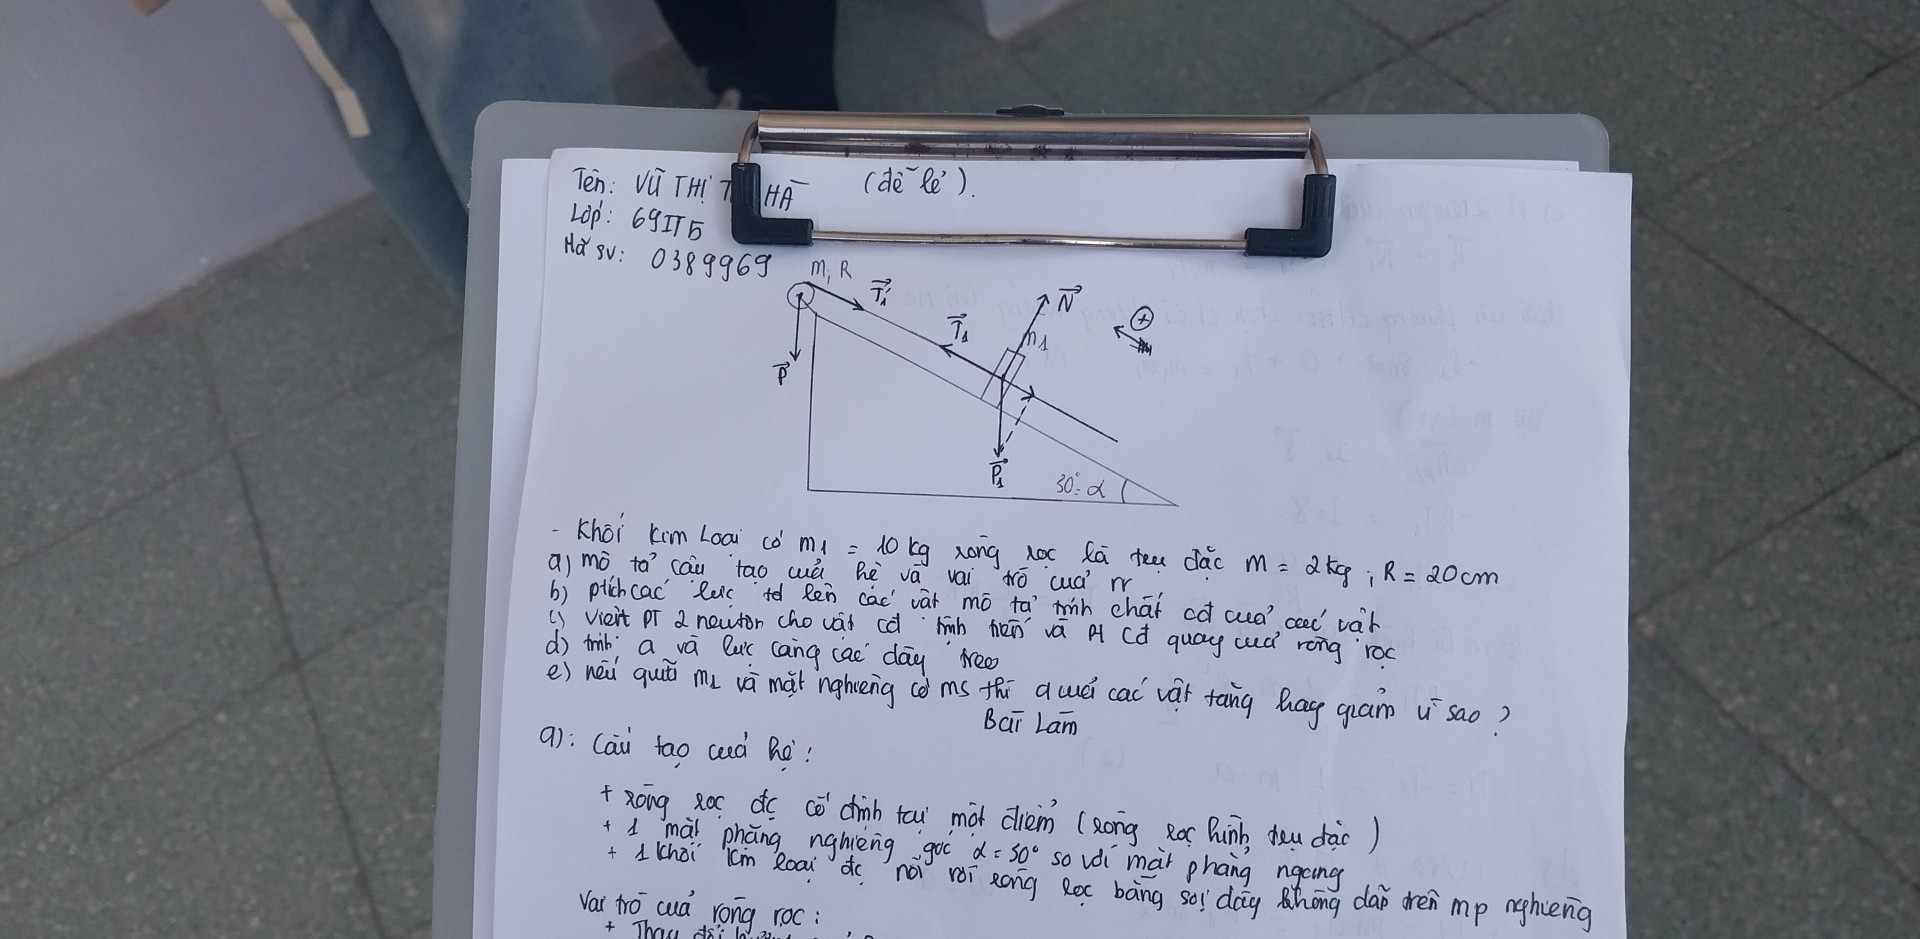 Tên: VŨ THỊ HÀ (đề lẻ).
Lớp: 69IT5
Mã sv: 0389969
m, R
T₁'
N
T₁
m₁
+
P
P₁
30° = α
- Khối kim loại có m₁ = 10 kg ròng rọc là trụ đặc m = 2kg ; R = 20cm
a) mô tả cấu tạo của hệ và vai trò của rr
b) ptích các lực td lên các vật mô tả tính chất cđ của các vật
c) viết PT 2 newton cho vật cđ tịnh tiến và Pt cđ quay của ròng rọc
d) tính a và lực căng các dây treo
e) nếu giữa m₁ và mặt nghiêng có ms thì a của các vật tăng hay giảm vì sao ?
Bài Làm
a): Cấu tạo của hệ:
+ ròng rọc đc cố định tại một điểm (ròng rọc hình trụ đặc)
+ 1 mặt phẳng nghiêng góc α = 30° so với mặt phẳng ngang
+ 1 khối kim loại đc nối với ròng rọc bằng sợi dây không dãn trên mp nghiêng
Vai trò của ròng rọc:
+ Thay đổi